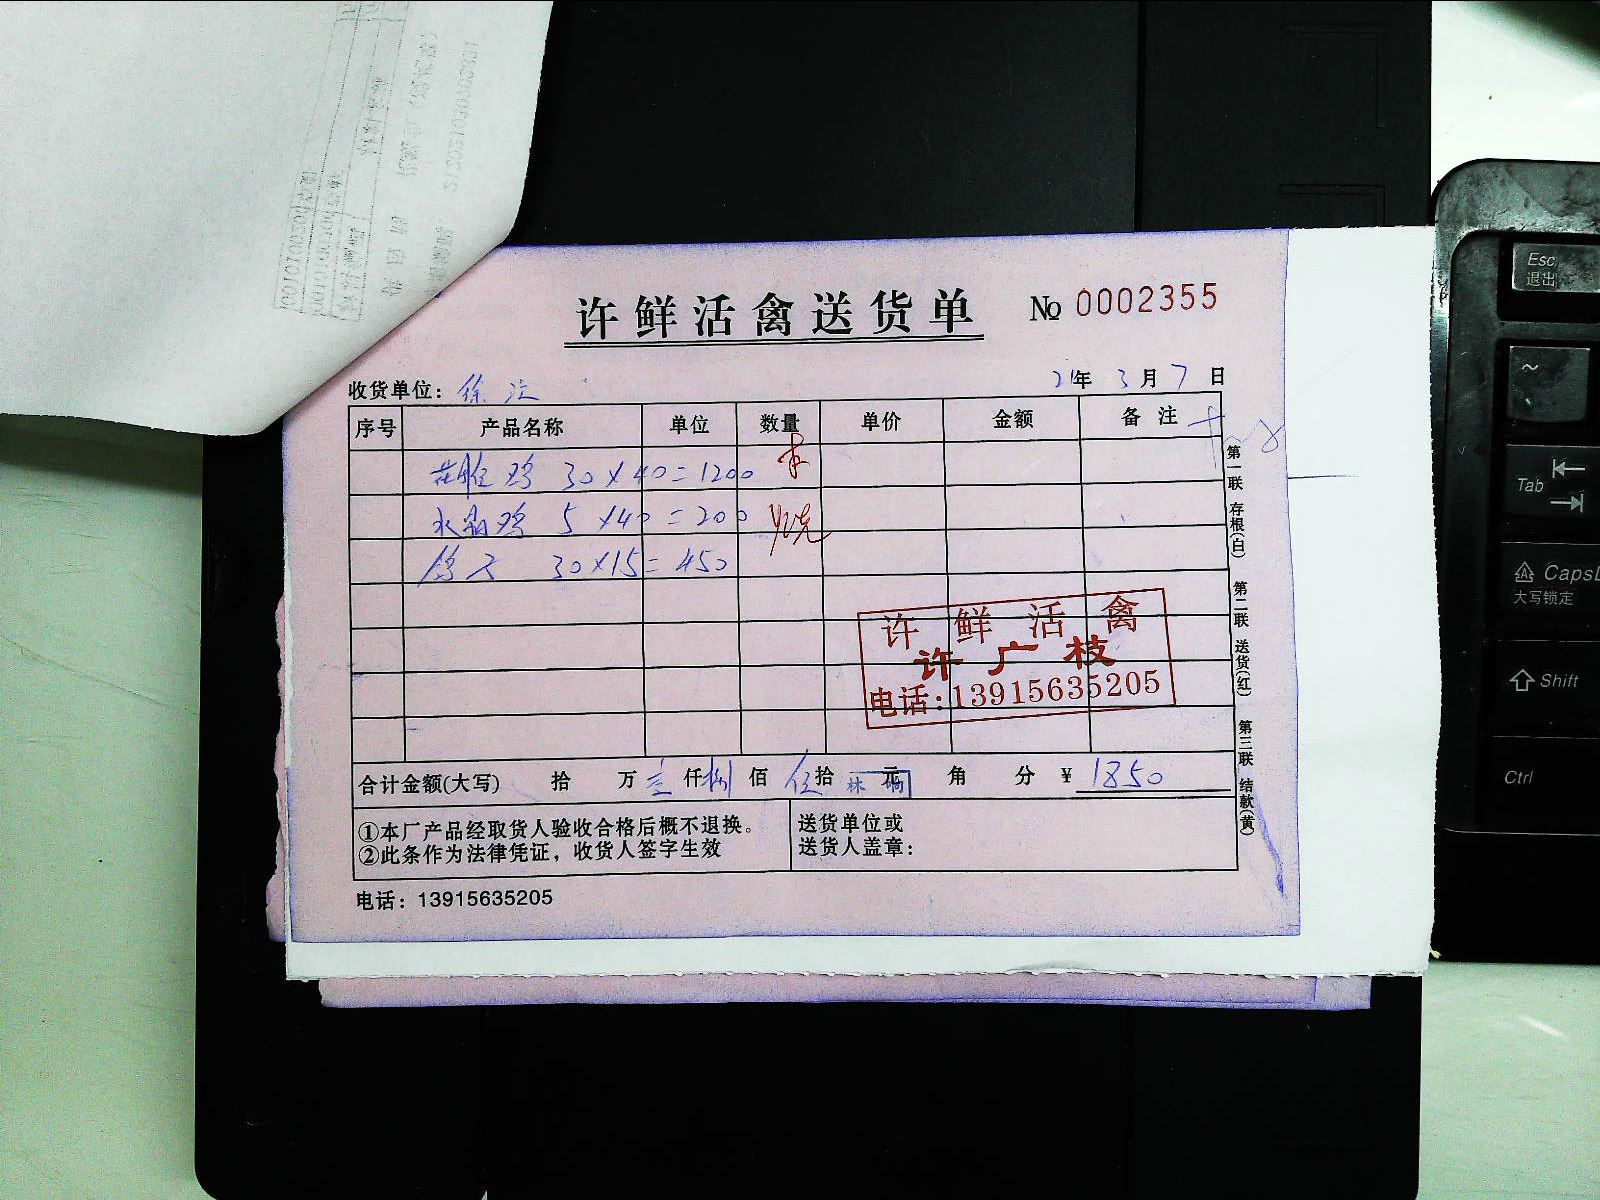 许鲜活禽送货单 № 0002355
收货单位: 徐 21年 3月 7日
序号 产品名称 单位 数量 单价 金额 备注
鸡 30×40=1200
水晶鸡 5×40=200
30×15=450
许鲜活禽
许广枝
电话:13915635205
合计金额(大写) 拾 万 壹仟捌佰伍拾 元 角 分 ¥ 1850
①本厂产品经取货人验收合格后概不退换。
②此条作为法律凭证，收货人签字生效
送货单位或
送货人盖章:
电话: 13915635205
第一联 存根(白) 第二联 送货(红) 第三联 结款(黄)
Esc
退出
~
Tab
CapsL
大写锁定
Shift
Ctrl